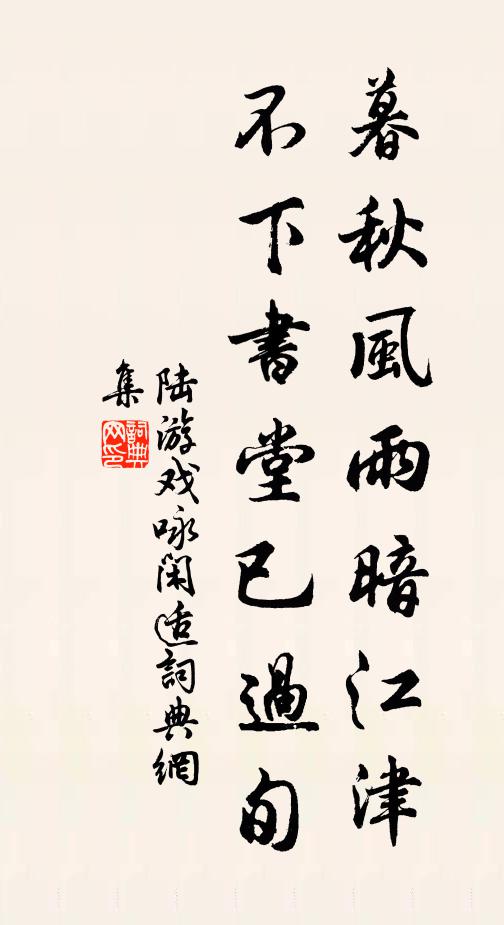 暮秋風雨暗江津
不下書堂已過旬
陆游戏咏闲适詞典網
集
詞典
网印